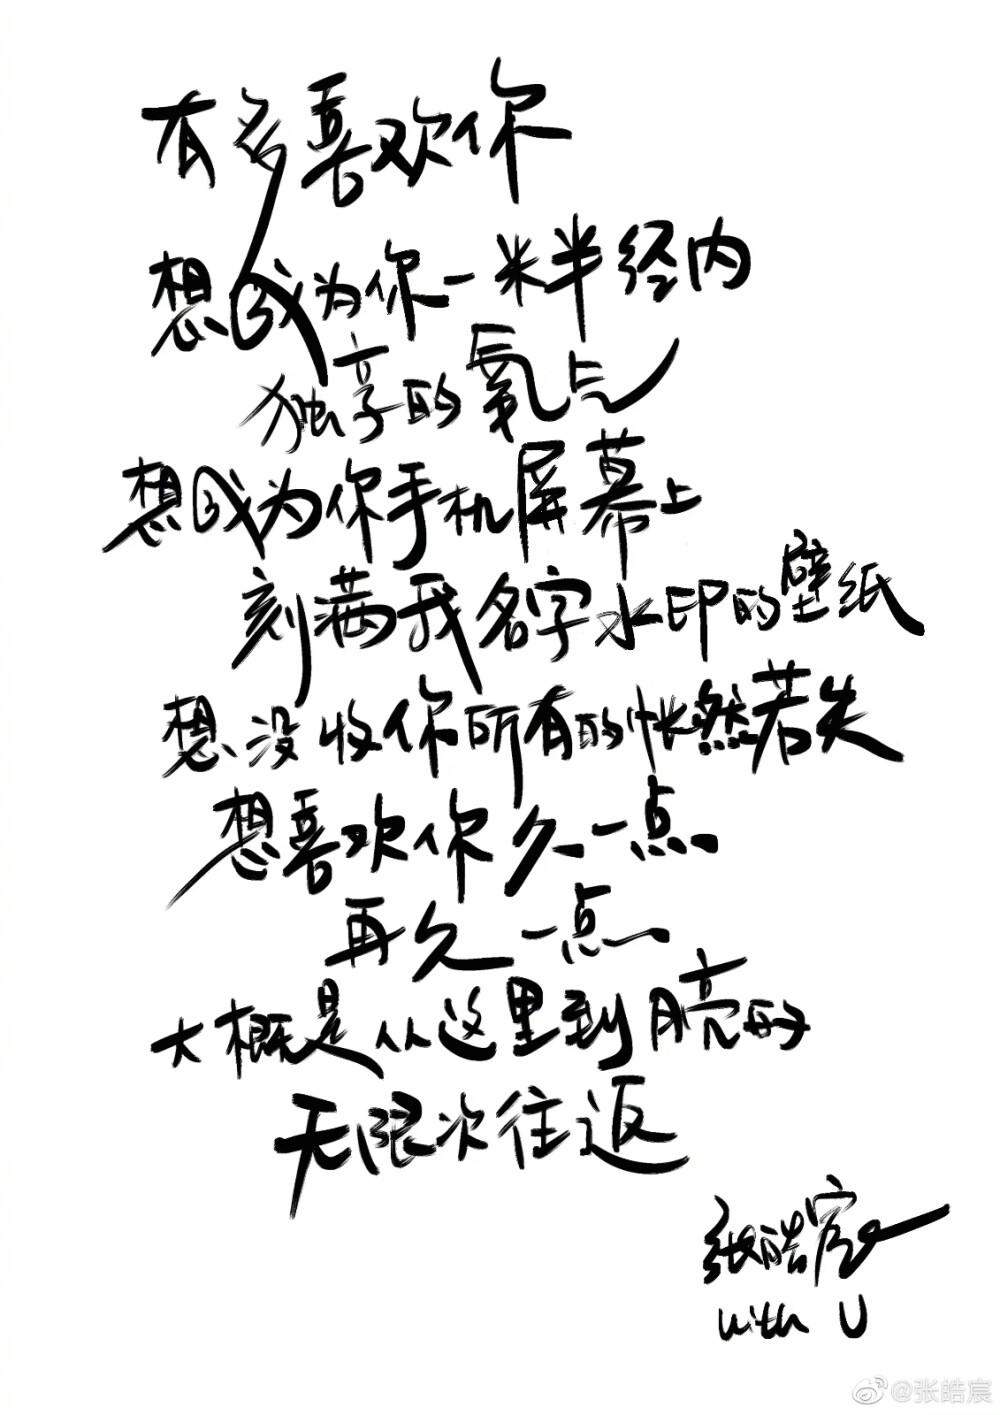 有多喜欢你
想成为你一米半经内
独享的氧气
想成为你手机屏幕上
刻满我名字水印的壁纸
想没收你所有的怅然若失
想喜欢你久一点
再久一点
大概是从这里到月亮的
无限次往返
张皓宸
with U
@张皓宸